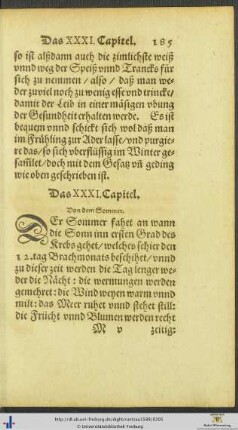 Das XXXI. Capitel. 185
so ist alßdann auch die zimlichste weiß
vnnd weg der Speiß vnnd Trancks für
sich zu nemmen / also / daß man we-
der zuviel noch zu wenig esse vnd trincke /
damit der Leib in einer mäsigen vbung
der Gesundheit erhalten werde. Es ist
bequem vnnd schickt sich wol daß man
im Frühling zur Ader lasse / vnd purgie-
re das / so sich vberflüssig im Winter ge-
samlet / doch mit dem Gesatz vñ geding
wie oben geschrieben ist.
Das XXXI. Capitel.
Von dem Sommer.
DEr Sommer fahet an wann
die Sonn inn ersten Grad des
Krebs gehet / welches schier den
12. tag Brachmonats beschiht / vnnd
zu dieser zeit werden die Tag lenger we-
der die Nächt: die wermungen werden
gemehret: die Wind weyen warm vnnd
milt: das Meer ruhet vnnd stehet still:
die Frücht vnnd Blumen werden recht
M v zeitig:
© Universitätsbibliothek Freiburg